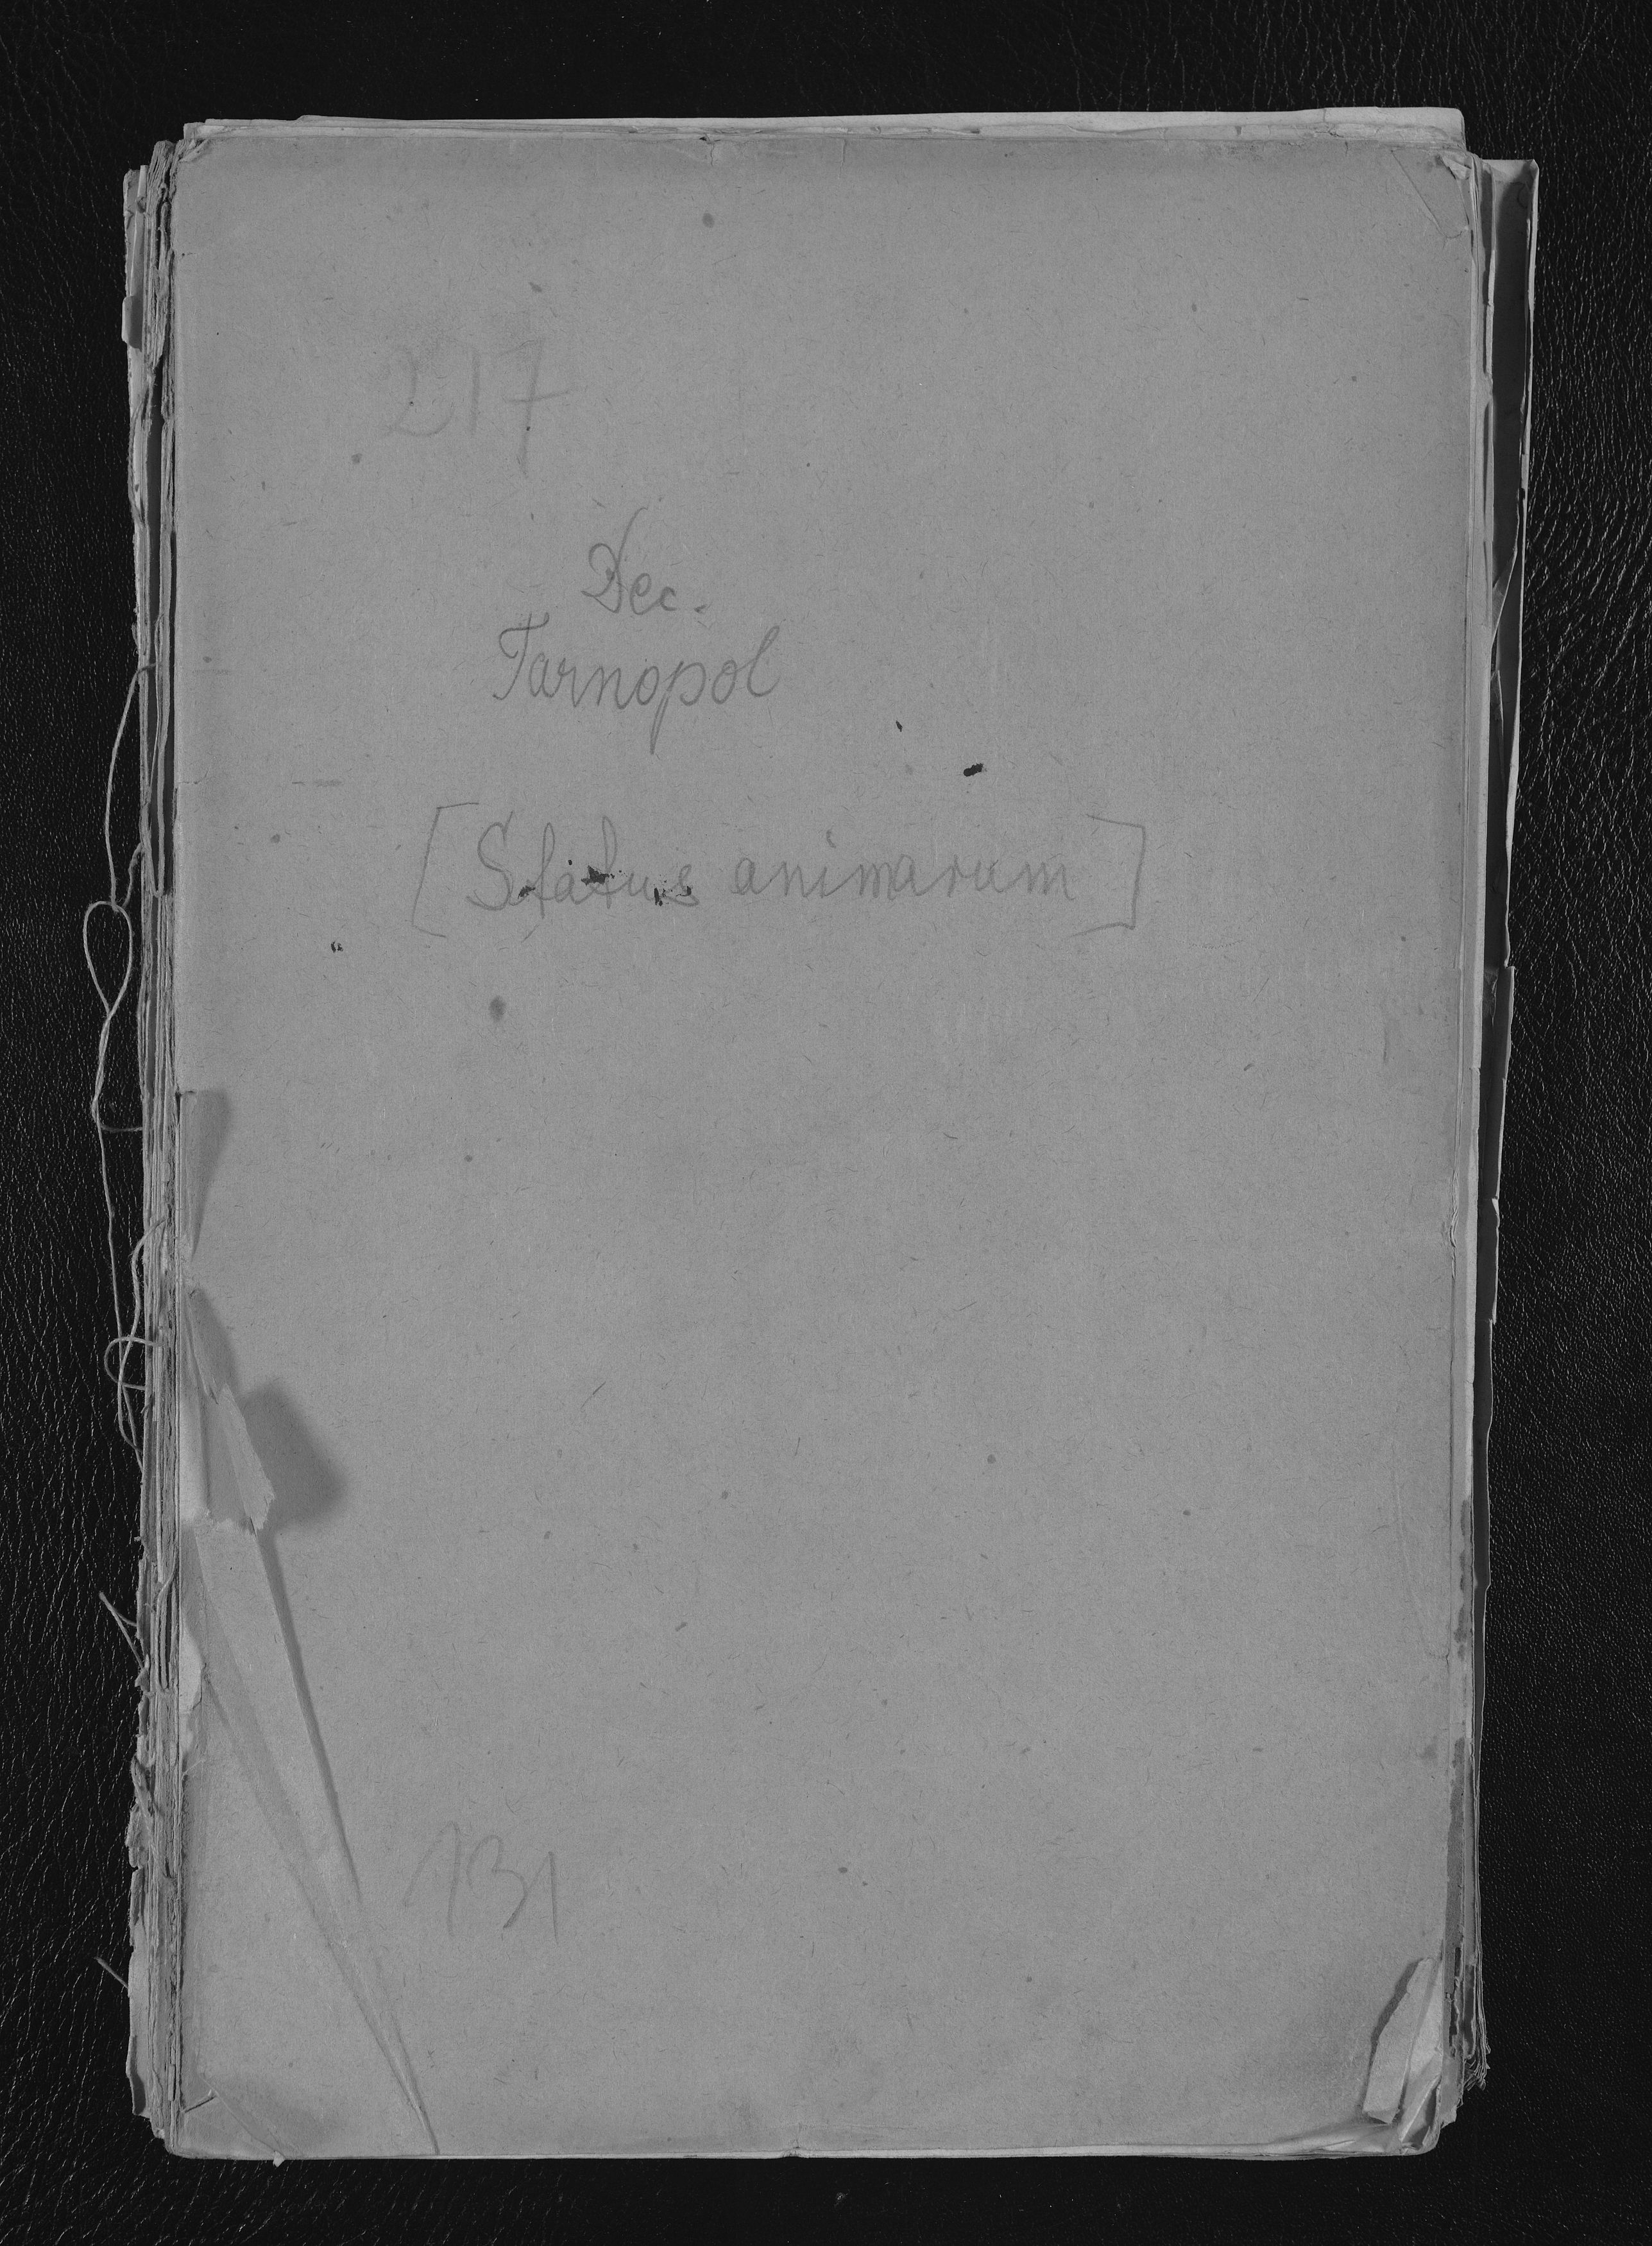 217
Dec.
Tarnopol
[Status animarum]
131